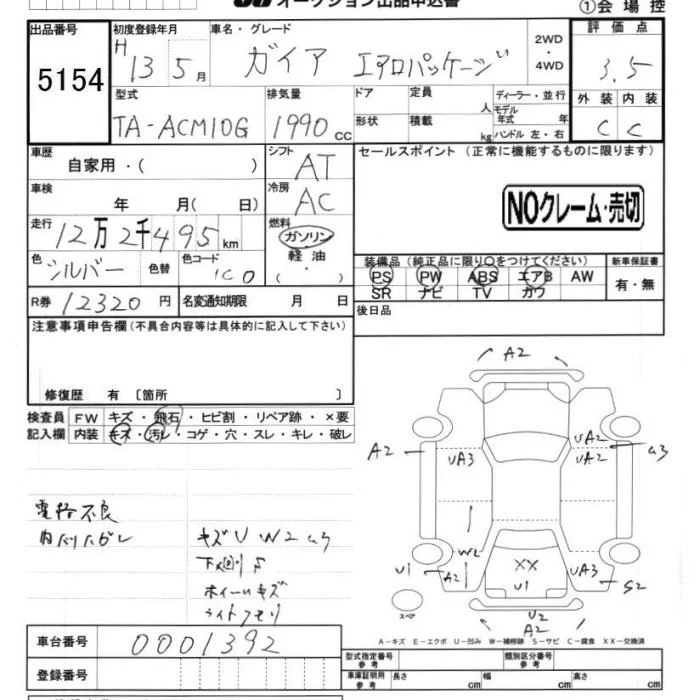 オークション出品申込書
①会場控
出品番号 初度登録年月 車名・グレード 評価点
5154 H 13 5月 ガイア エアロパッケージ 2WD ・ 4WD 3.5
型式 排気量 ドア 定員 人 ディーラー・並行 外装 内装
TA-ACM10G 1990cc 形状 積載 kg モデル年式 年 ハンドル 左・右 C C
車歴 自家用・( ) シフト AT セールスポイント (正常に機能するものに限ります)
車検 年 月( 日) 冷房 AC
NOクレーム・売切
走行 12万2千495km 燃料 ガソリン・軽油・( )
色 シルバー 色替 色コード 1C0
装備品(純正品に限り〇をつけてください) 新車保証書
PS PW ABS エアB AW 有・無
SR ナビ TV カワ
R券 12320円 名変通知期限 月 日 後日品
注意事項申告欄(不具合内容等は具体的に記入して下さい)
修復歴 有 〔箇所 〕
検査員 FW キズ・飛石・ヒビ割・リペア跡・×要
記入欄 内装 キズ・汚レ・コゲ・穴・スレ・キレ・破レ
A2
A2 UA3 UA2 UA2 a3
電格不良
キズ U W2 a3
下回りサ
ホイールキズ
ライトクモリ
W2 XX U1 UA3
U1 A2 S2
スペア U2 A2
A-キズ E-エクボ U-凹み W-補修跡 S-サビ C-腐食 XX-交換済
車台番号 0001392
型式指定番号 参考 類別区分番号 参考
登録番号 車庫証明用 参考 長さ cm 幅 cm 高さ cm